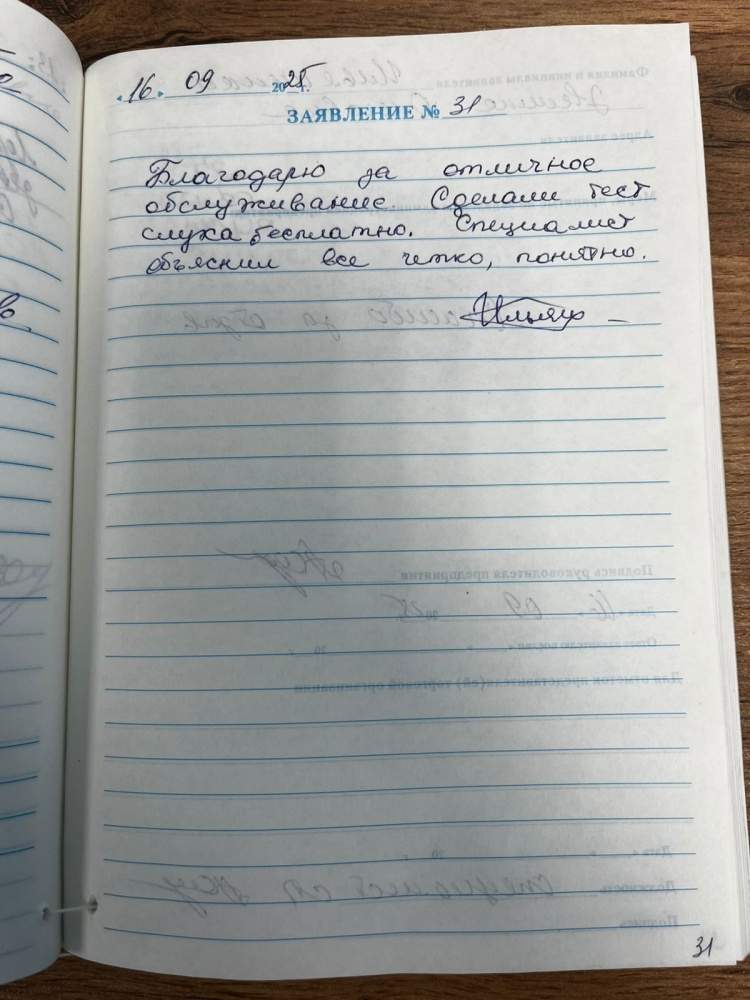 «16» 09 2025 г.
ЗАЯВЛЕНИЕ № 31
Благодарю за отличное
обслуживание. Сделали тест
слуха бесплатно. Специалист
объяснил все четко, понятно.
31